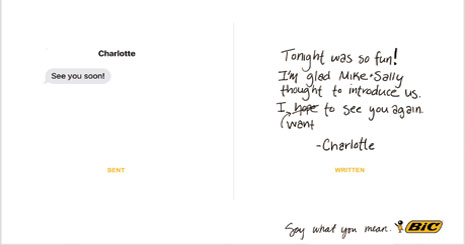 Charlotte
See you soon!
SENT
Tonight was so fun!
I'm glad Mike + Sally
thought to introduce us.
I hope to see you again.
want
-Charlotte
WRITTEN
Say what you mean. BIC